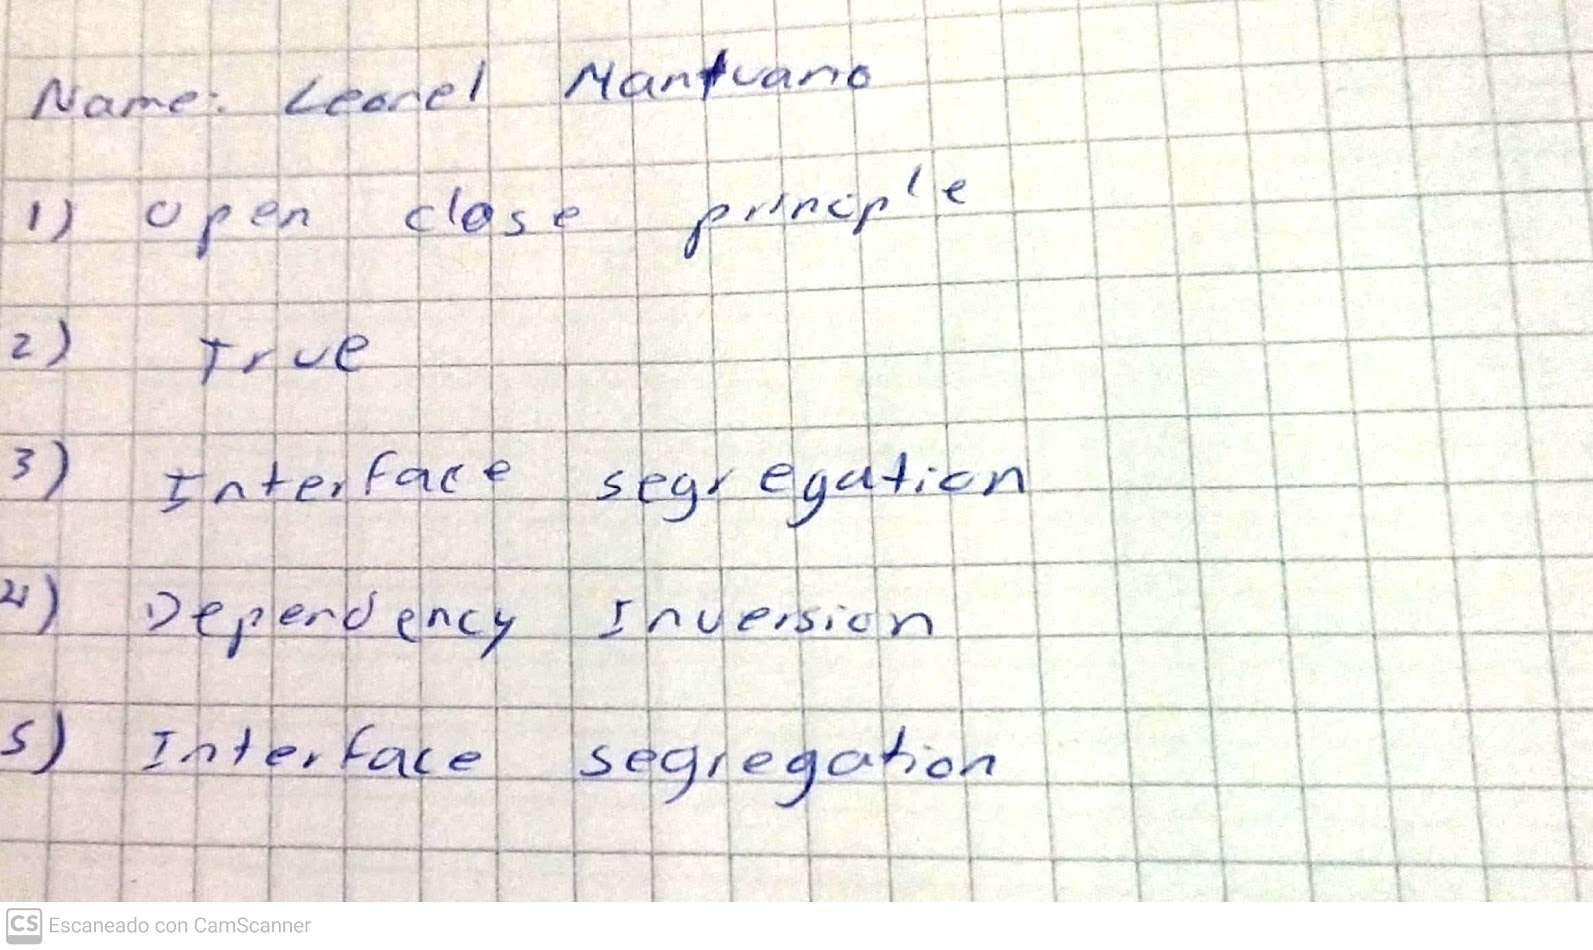 Name: Leonel Mantuano
1) Open close principle
2) True
3) Interface segregation
4) Dependency Inversion
5) Interface segregation
CS Escaneado con CamScanner